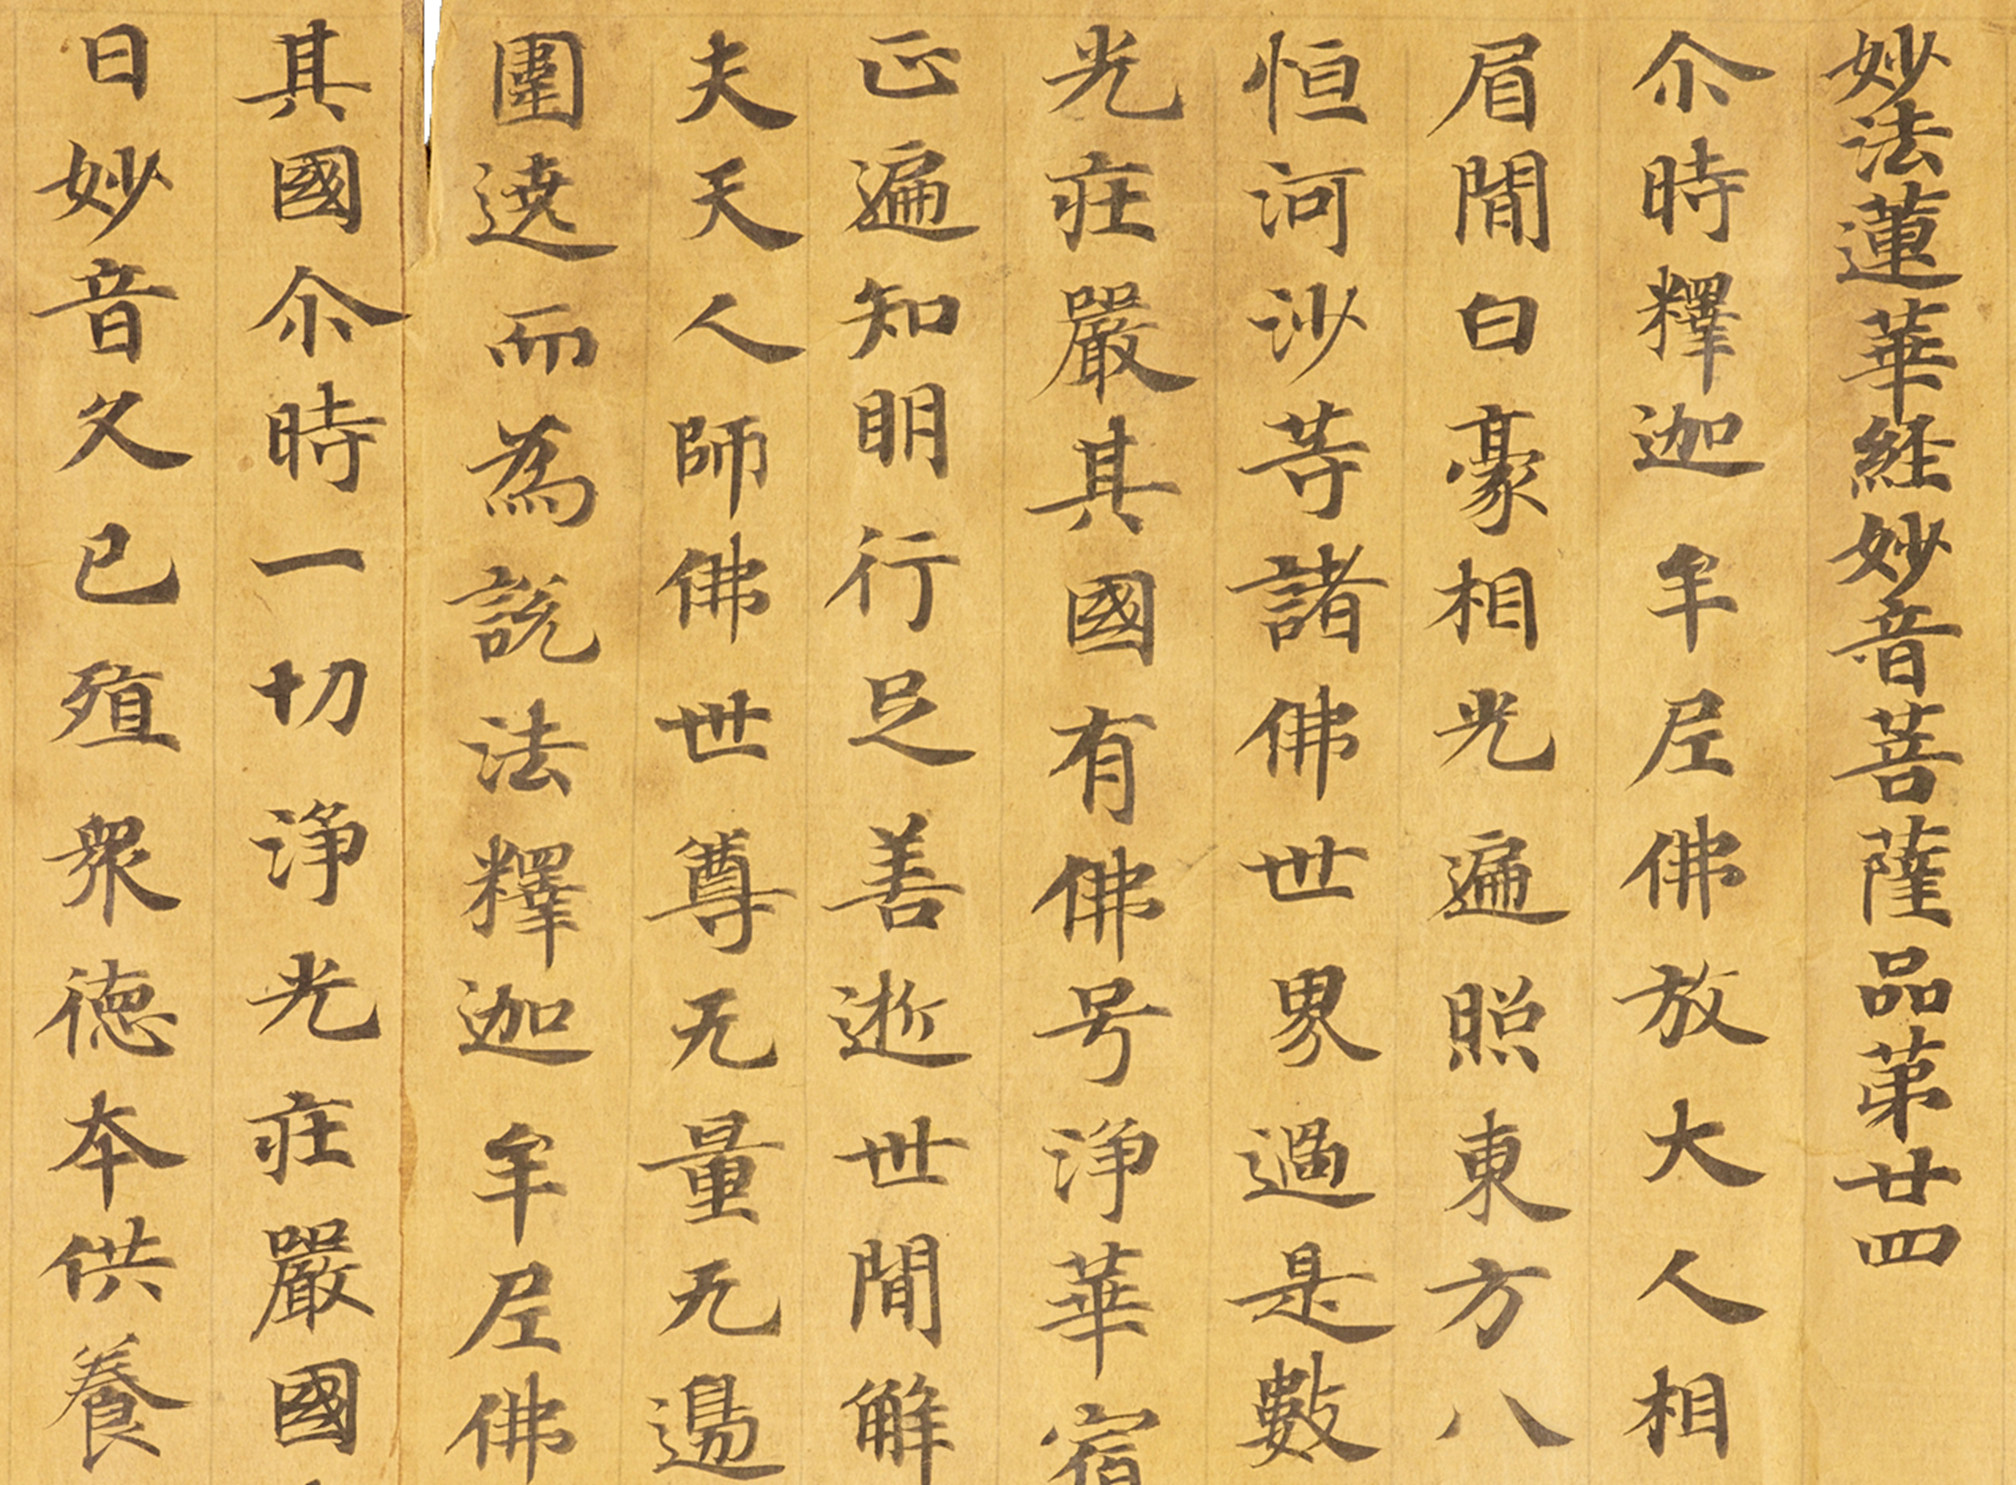 妙法蓮華経妙音菩薩品第廿四
尒時釋迦牟尼佛放大人相
眉間白豪相光遍照東方八
恒河沙䓁諸佛世界過是數
光庄嚴其國有佛号浄華宿
正遍知明行足善逝世間解
夫天人師佛世尊无量无邊
圍遶而為説法釋迦牟尼佛
其國尒時一切浄光庄嚴國
日妙音久已殖衆徳本供養